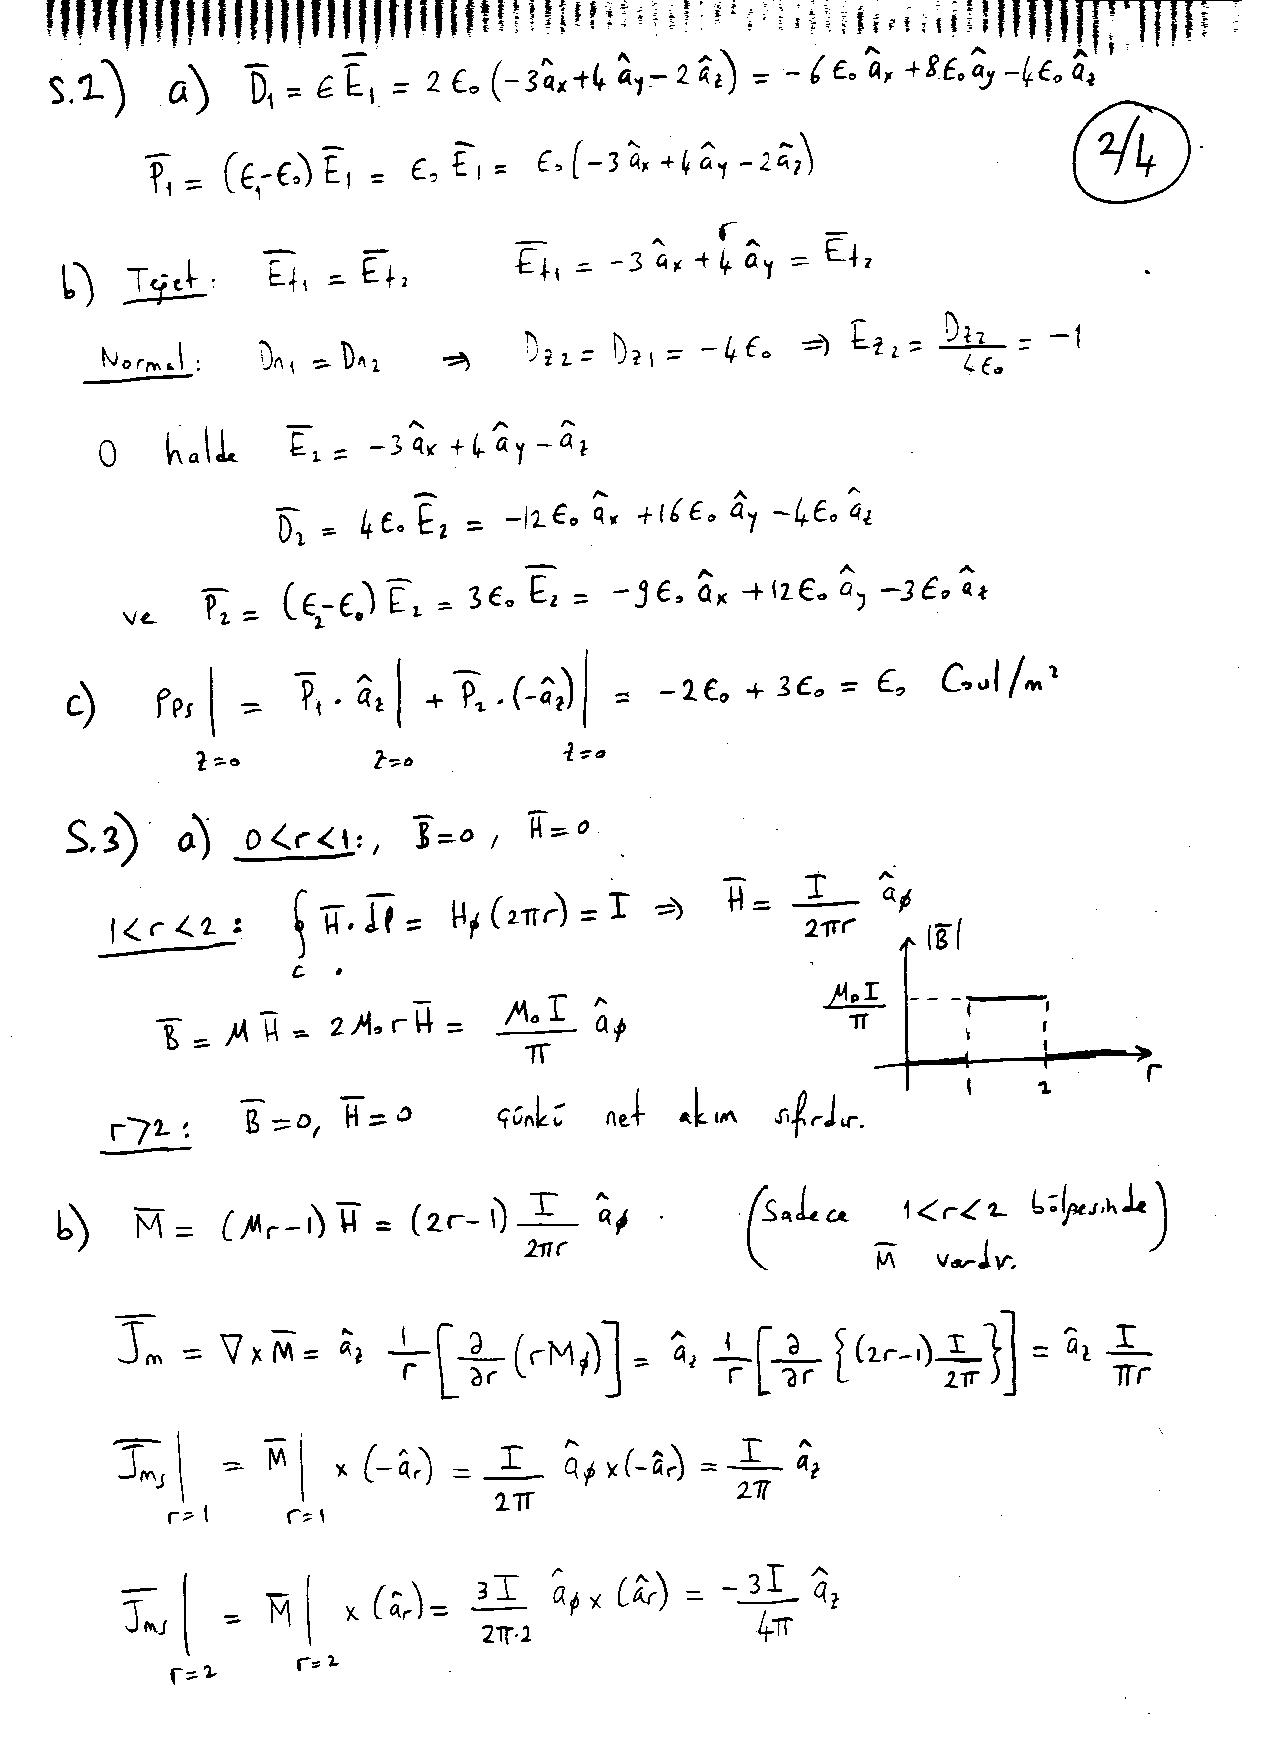 S.2) a) D̅₁ = ϵ E̅₁ = 2 ϵ₀ (-3âx + 4 ây - 2 âz) = -6 ϵ₀ âx + 8 ϵ₀ ây - 4 ϵ₀ âz
2/4
P̅₁ = (ϵ₁-ϵ₀) E̅₁ = ϵ₀ E̅₁ = ϵ₀ (-3 âx + 4 ây - 2 âz)
b) Teğet: E̅t₁ = E̅t₂ E̅t₁ = -3 âx + 4 ây = E̅t₂
Normal: Dn₁ = Dn₂ ⇒ Dz₂ = Dz₁ = -4 ϵ₀ ⇒ E̅z₂ = Dz₂/4ϵ₀ = -1
O halde E̅₂ = -3 âx + 4 ây - âz
D̅₂ = 4ϵ₀ E̅₂ = -12 ϵ₀ âx + 16 ϵ₀ ây - 4 ϵ₀ âz
ve P̅₂ = (ϵ₂-ϵ₀) E̅₂ = 3ϵ₀ E̅₂ = -9 ϵ₀ âx + 12 ϵ₀ ây - 3 ϵ₀ âz
c) ρps| = P̅₁ . âz| + P̅₂ . (-âz)| = -2 ϵ₀ + 3 ϵ₀ = ϵ₀ Coul/m²
z=0 z=0 z=0
S.3) a) 0<r<1:, B̅=0, H̅=0
1<r<2: ∮ H̅.dl̅ = Hϕ (2πr) = I ⇒ H̅ = I/2πr âϕ
c
|B̅|
μ₀I/π
B̅ = μ H̅ = 2 μ₀ r H̅ = μ₀ I/π âϕ
r
1 2
r>2: B̅=0, H̅=0 çünkü net akım sıfırdır.
b) M̅ = (μr-1) H̅ = (2r-1) I/2πr âϕ . (Sadece 1<r<2 bölgesinde
M̅ vardır.)
J̅m = ∇ x M̅ = âz 1/r [∂/∂r (rMϕ)] = âz 1/r [∂/∂r {(2r-1) I/2π}] = âz I/πr
J̅ms| = M̅| x (-âr) = I/2π âϕ x (-âr) = I/2π âz
r=1 r=1
J̅ms| = M̅| x (âr) = 3I/2π.2 âϕ x (âr) = -3I/4π âz
r=2 r=2